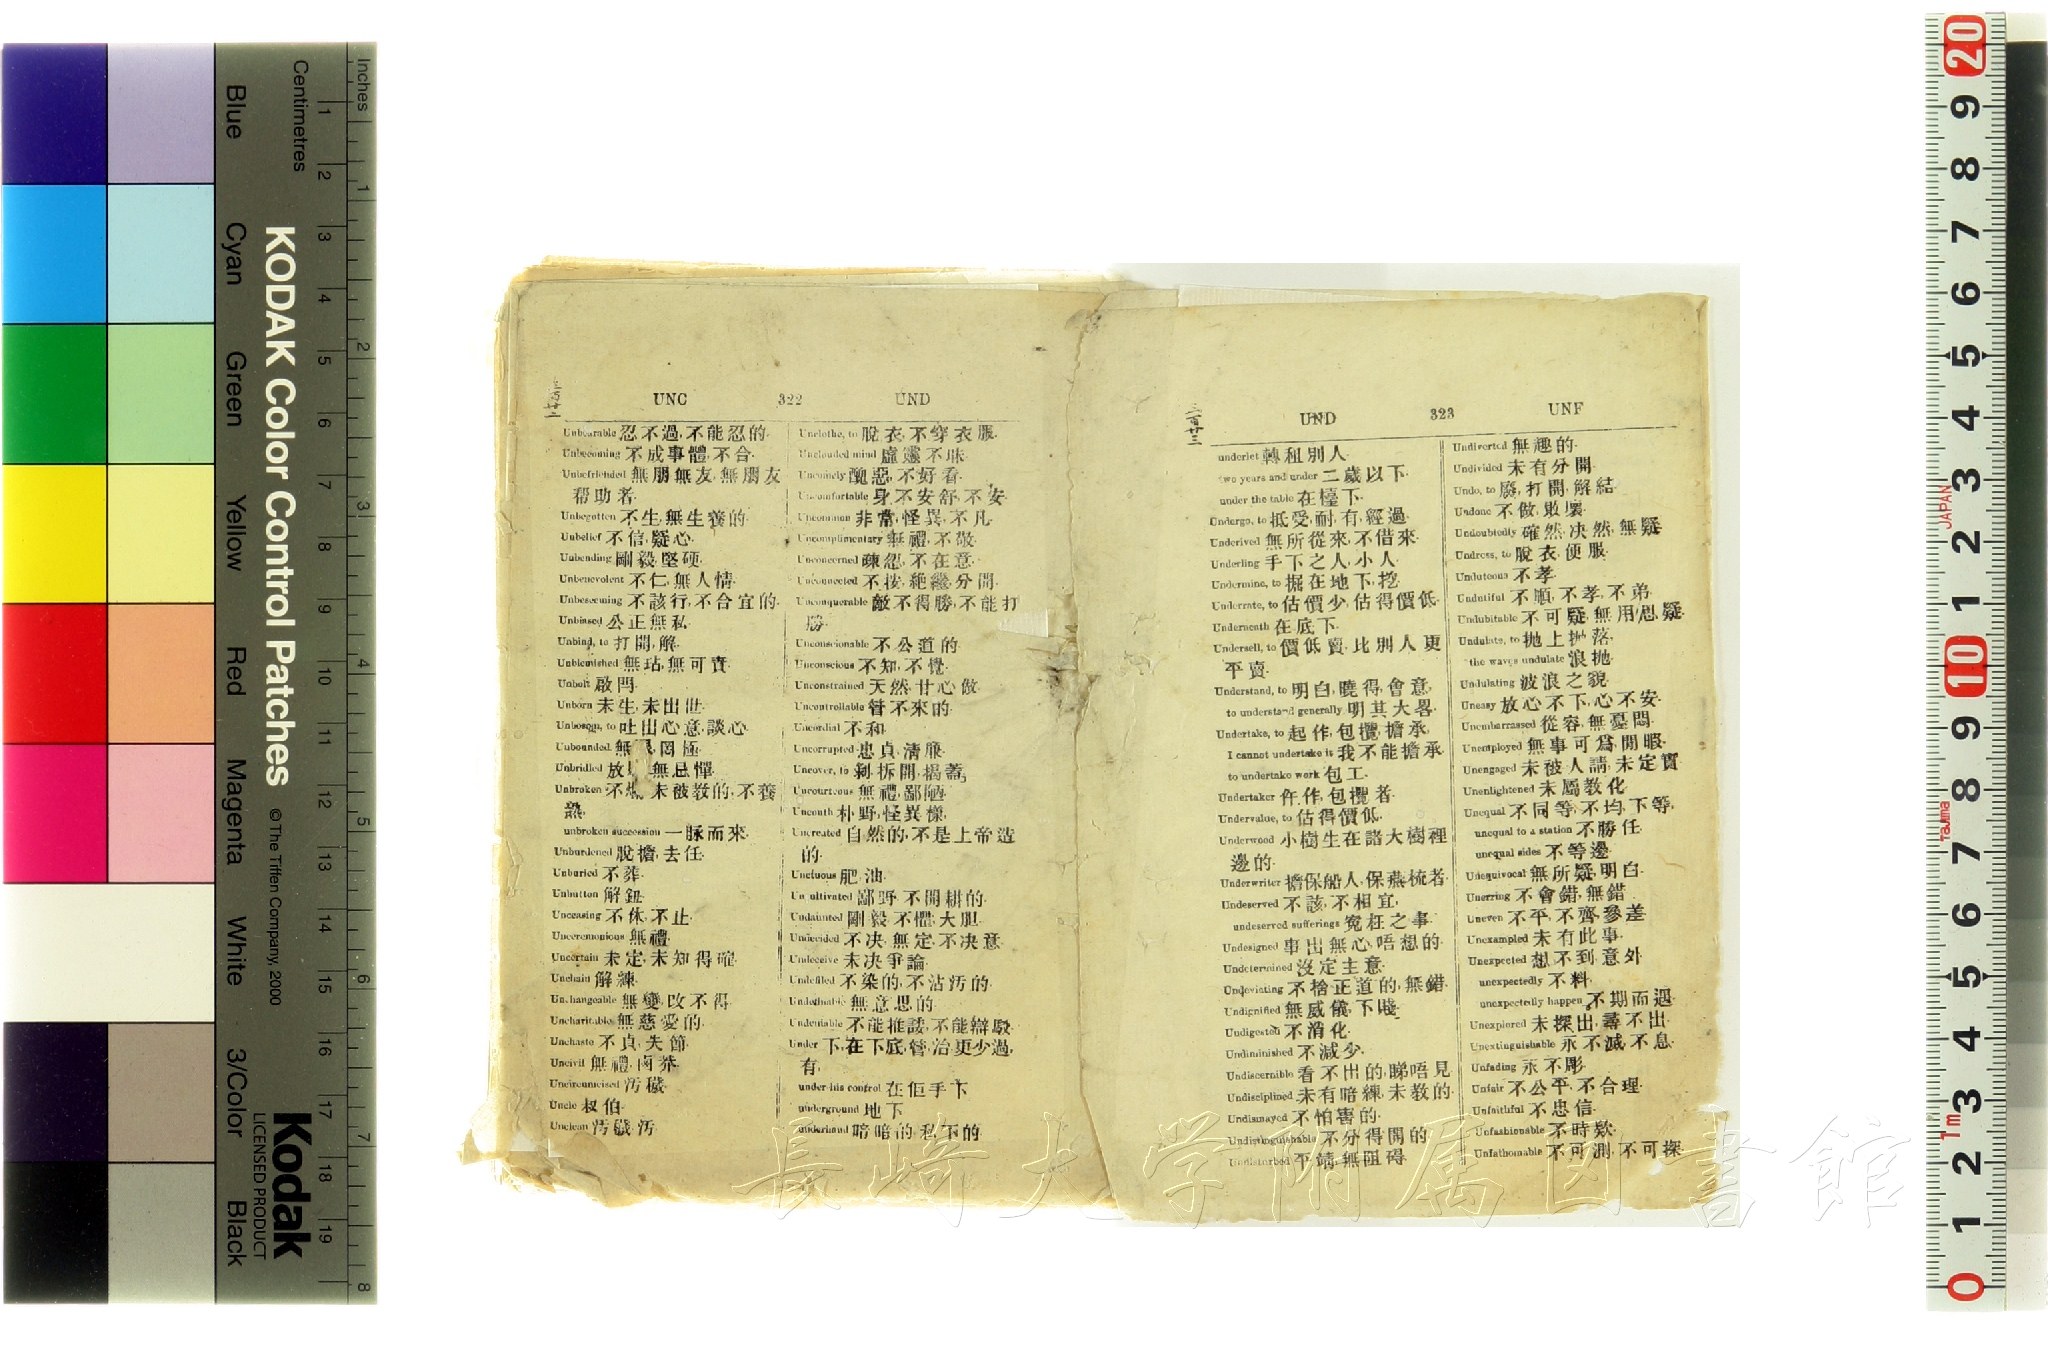 Blue
Cyan
Green
Yellow
Red
Magenta
White
3/Color
Black
Centimetres
Inches
KODAK Color Control Patches
© The Tiffen Company, 2000
Kodak
LICENSED PRODUCT
UNC 322 UND
Unbearable 忍不過,不能忍的.
Unbecoming 不成事體,不合.
Unbefriended 無朋無友,無朋友
帮助者.
Unbegotten 不生,無生養的.
Unbelief 不信,疑心.
Unbending 剛毅,堅硬.
Unbenevolent 不仁,無人情.
Unbeseeming 不該行,不合宜的.
Unbiased 公正無私.
Unbind, to 打開,解.
Unblemished 無玷,無可責.
Unbolt 啟閂.
Unborn 未生,未出世.
Unbosom, to 吐出心意,談心.
Unbounded 無
Unbridled 放 無忌憚.
Unbroken 不 未被教的,不養
熟.
unbroken succession 一脉而來.
Unburdened 脫擔,去任.
Unburied 不葬.
Unbutton 解鈕.
Unceasing 不休,不止.
Unceremonious 無禮.
Uncertain 未定,未知得確.
Unchain 解鍊.
Unchangeable 無變,改不得.
Uncharitable 無慈愛的.
Unchaste 不貞,失節.
Uncivil 無禮,鹵莽.
Uncircumcised 汚穢.
Uncle 叔伯.
Unclean 汚穢,汚.
Unclothe, to 脫衣,不穿衣服.
Unclouded mind 虛靈不昧.
Uncomely 醜惡,不好看.
Uncomfortable 身不安舒,不安.
Uncommon 非常,怪異,不凡.
Uncomplimentary 無禮,不敬.
Unconcerned 疎忽,不在意.
Unconnected 不接,絕繼,分開.
Unconquerable 敵不得勝,不能打
勝.
Unconscionable 不公道的.
Unconscious 不知,不覺.
Unconstrained 天然,甘心做.
Uncontrollable 管不來的.
Uncordial 不和.
Uncorrupted 忠貞,清廉.
Uncover, to 剝,拆開,揭蓋.
Uncourteous 無禮,鄙陋.
Uncouth 朴野,怪異樣.
Uncreated 自然的,不是上帝造
的.
Unctuous 肥,油.
Uncultivated 鄙野,不開耕的.
Undaunted 剛毅,不懼,大胆.
Undecided 不决,無定,不决意.
Undeceive 未决爭論.
Undefiled 不染的,不沾汚的.
Undefinable 無意思的.
Undeniable 不能推諉,不能辯駁.
Under 下,在下底,管,治更少過,
有.
under his control 在佢手下.
underground 地下.
underhand 暗暗的,私下的.
三百廿三
UND 323 UNF
underlet 轉租別人.
two years and under 二歲以下.
under the table 在檯下.
Undergo, to 抵受,耐,有,經過.
Underived 無所從來,不借來.
Underling 手下之人,小人.
Undermine, to 掘在地下,挖.
Underrate, to 估價少,估得價低.
Underneath 在底下.
Undersell, to 價低賣,比別人更
平賣.
Understand, to 明白,曉得,會意.
to understand generally 明其大畧.
Undertake, to 起作,包攬,擔承.
I cannot undertake it 我不能擔承.
to undertake work 包工.
Undertaker 仵作,包攬者.
Undervalue, to 估得價低.
Underwood 小樹生在諸大樹裡
邊的.
Underwriter 擔保船人,保燕梳者.
Undeserved 不該,不相宜.
undeserved sufferings 寃枉之事.
Undesigned 事出無心,唔想的.
Undetermined 沒定主意.
Undeviating 不捨正道的,無錯.
Undignified 無威儀,下賤.
Undigested 不消化.
Undiminished 不減少.
Undiscernible 看不出的,睇唔見.
Undisciplined 未有暗練,未教的.
Undismayed 不怕害的.
Undistinguishable 不分得開的.
Undisturbed 平靖,無阻碍.
Undiverted 無趣的.
Undivided 未有分開.
Undo, to 廢,打開,解結.
Undone 不做,敗壞.
Undoubtedly 確然,决然,無疑.
Undress, to 脫衣,便服.
Unduteous 不孝.
Undutiful 不順,不孝,不弟.
Undubitable 不可疑,無用思疑.
Undulate, to 抛上抛落.
the waves undulate 浪抛.
Undulating 波浪之貌.
Uneasy 放心不下,心不安.
Unembarrassed 從容,無憂悶.
Unemployed 無事可爲,閒暇.
Unengaged 未被人請,未定實.
Unenlightened 未屬教化.
Unequal 不同等,不均,下等.
unequal to a station 不勝任.
unequal sides 不等邊.
Unequivocal 無所疑,明白.
Unerring 不會錯,無錯.
Uneven 不平,不齊,參差.
Unexampled 未有此事.
Unexpected 想不到,意外.
unexpectedly 不料.
unexpectedly happen 不期而遇.
Unexplored 未探出,尋不出.
Unextinguishable 永不滅,不息.
Unfading 永不彫.
Unfair 不公平,不合理.
Unfaithful 不忠信.
Unfashionable 不時欵.
Unfathomable 不可測,不可探.
長崎大学附属図書館
JAPAN
Tajima
1m